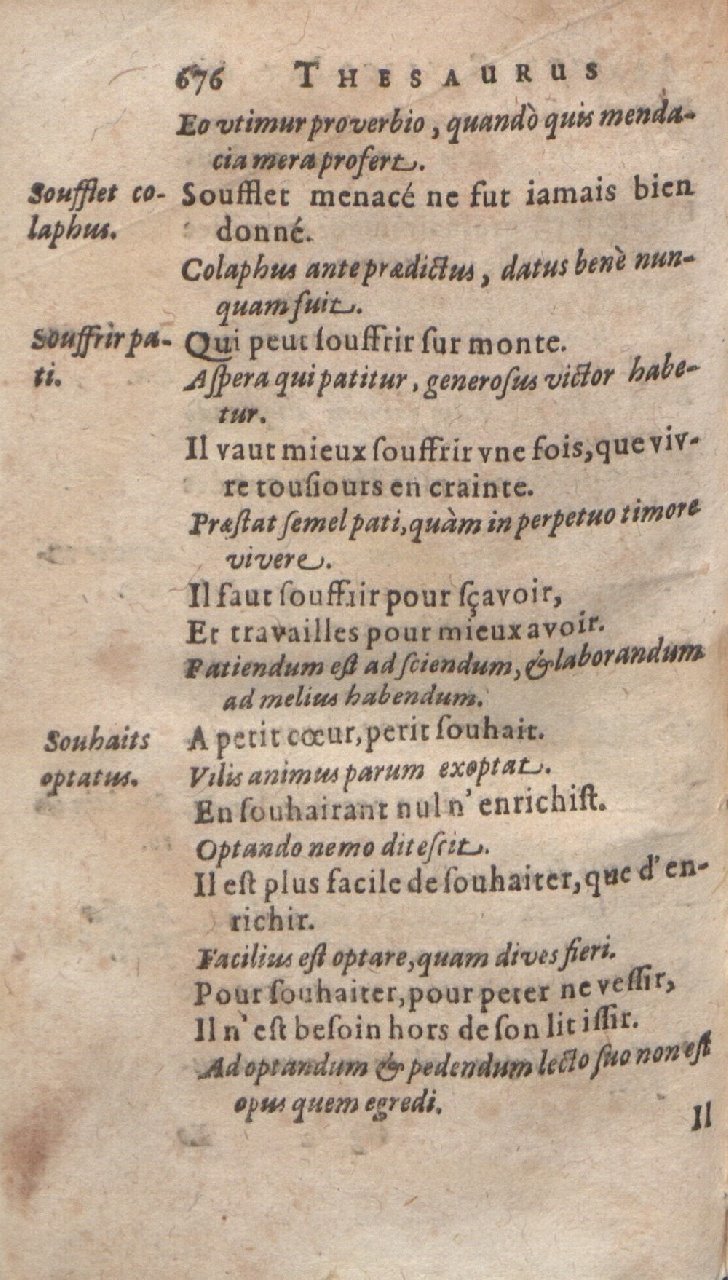 676 THESAURUS
Eo vtimur proverbio, quandò quis menda-
cia mera profert.
Soufflet co- Soufflet menacé ne fut iamais bien
laphus. donné.
Colaphus ante prædictus, datus benè nun-
quam fuit.
Souffrir pa- Qui peut souffrir surmonte.
ti. Aſpera qui patitur, generoſus victor habe-
tur.
Il vaut mieux ſouffrir vne fois, que viv-
re touſiours en crainte.
Præſtat ſemel pati, quàm in perpetuo timore
vivere.
Il faut ſouffrir pour ſçavoir,
Et travailles pour mieux avoir.
Patiendum eſt ad ſciendum, & laborandum
ad melius habendum.
Souhaits A petit cœur, petit ſouhait.
optatus. Vilis animus parum exoptat.
En ſouhaitant nul n'enrichiſt.
Optando nemo diteſcit.
Il eſt plus facile de ſouhaiter, que d'en-
richir.
Facilius eſt optare, quam dives fieri.
Pour ſouhaiter, pour peter ne veſſir,
Il n'eſt beſoin hors de ſon lit iſſir.
Ad optandum & pedendum lecto ſuo non eſt
opus quem egredi.
Il